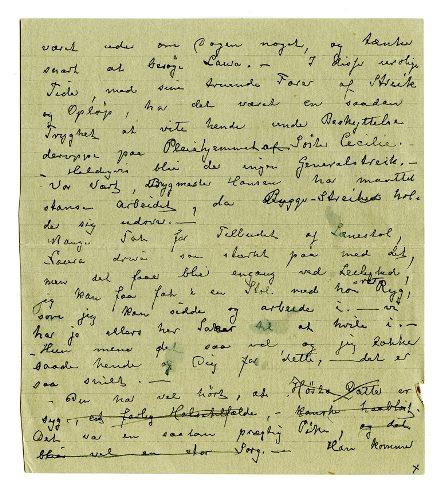 været ude om Dagen noget, og tænker
snart at besøge Laura. – I disse urolige
Tider, med sine truende Farer af Streik
og Opløp, har det været en saadan
Tryghet at vite hende under Beskyttelse
deroppe paa Pleiehjemmet af Søster Cecilie. –
– Heldigvis blev de ingen Generalstreik. –
– Vor Vært, Bygmester Hansen har maattet
stanse Arbeidet, da Bygge-Streiken hol-
der sig udover. –
Mange Tak for Tilbudet af Lænestol,
Laura driver saa stærkt paa med det,
men det faar bli engang ved Leilighed,
jeg kan faa fat i en Stol med høi Ryg,
som jeg kan sidde og arbeide i. – vi
har jo ellers her Saker til at hvile i. –
– Hun mener det saa vel og jeg takker
saade hende og Dig for dette, – det er
saa snilt. –
– Du har vel hørt, at Datter er
syg,
Det var en saadan prægtig Pike, og det
blir vel en stor Sorg. – Han kommer
x